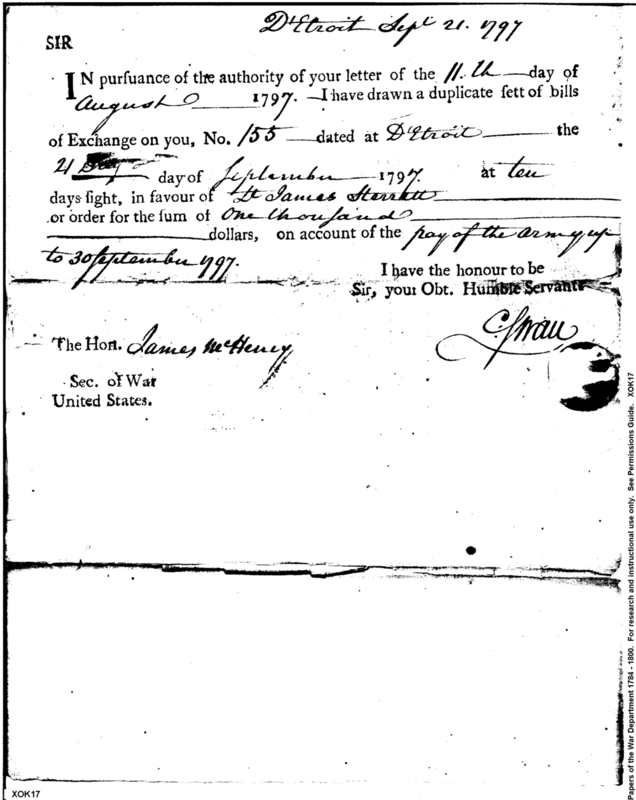 D'Etroit Sept. 21. 1797
SIR
IN pursuance of the authority of your letter of the 11.th day of
August 1797. I have drawn a duplicate sett of bills
of Exchange on you, No. 155 dated at D'Etroit the
21 day of September 1797. at ten
days sight, in favour of Lt James Sterrett
or order for the sum of One thousand
dollars, on account of the pay of the army up
to 30 September 1797.
I have the honour to be
Sir, your Obt. Humble Servant
C. Swan
The Hon. James McHenry
Sec. of War
United States.
Papers of the War Department 1784 - 1800. For research and instructional use only. See Permissions Guide. XOK17
XOK17